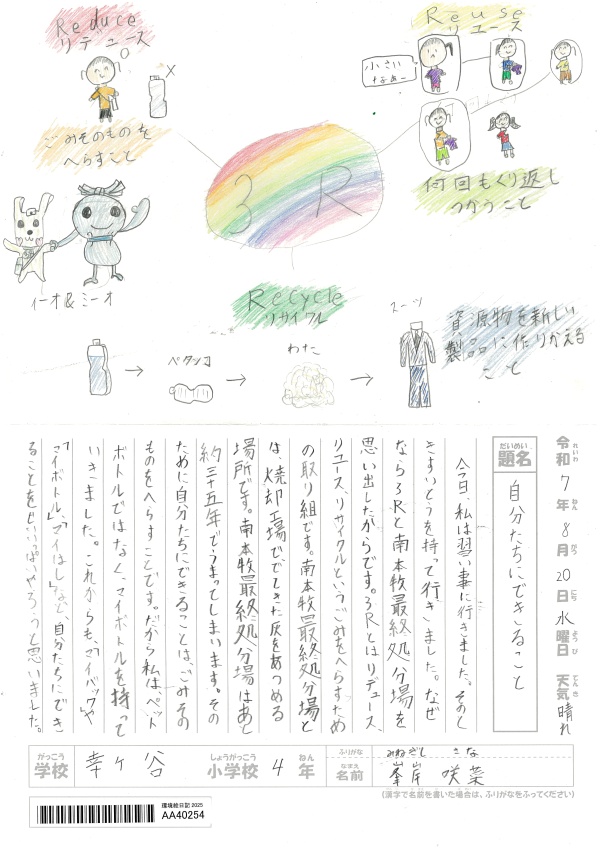 Reduce
リデュース
×
ごみそのものを
へらすこと
イーオ&ミーオ
Reuse
リユース
小さい
なぁー
何回もくり返し
つかうこと
3R
Recycle
リサイクル
ペタンコ
わた
スーツ
資源物を新しい
製品に作りかえる
こと
令和7年8月20日水曜日 天気 晴れ
れいわ ねん がつ にち ようび てんき
だいめい
題名
自分たちにできること
今日、私は習い事に行きました。そのと
きすいとうを持って行きました。なぜ
なら3Rと南本牧最終処分場を
思い出したからです。3Rとはリデュース、
リユース、リサイクルというごみをへらすため
の取り組です。南本牧最終処分場と
は、焼却工場でできた灰をあつめる
場所です。南本牧最終処分場はあと
約三十五年でうまってしまいます。その
ために自分たちにできることは、ごみその
ものをへらすことです。だから私は、ペット
ボトルではなく、マイボトルを持って
いきました。これからも、「マイバック」や
「マイボトル」、「マイはし」など自分たちにでき
ることをせいいっぱいやろうと思いました。
がっこう
学校
幸ヶ谷
しょうがっこう
小学校
4
ねん
年
ふりがな
みねぎし さな
なまえ
名前
峯岸 咲菜
(漢字で名前を書いた場合は、ふりがなをふってください)
環境絵日記 2025
AA40254